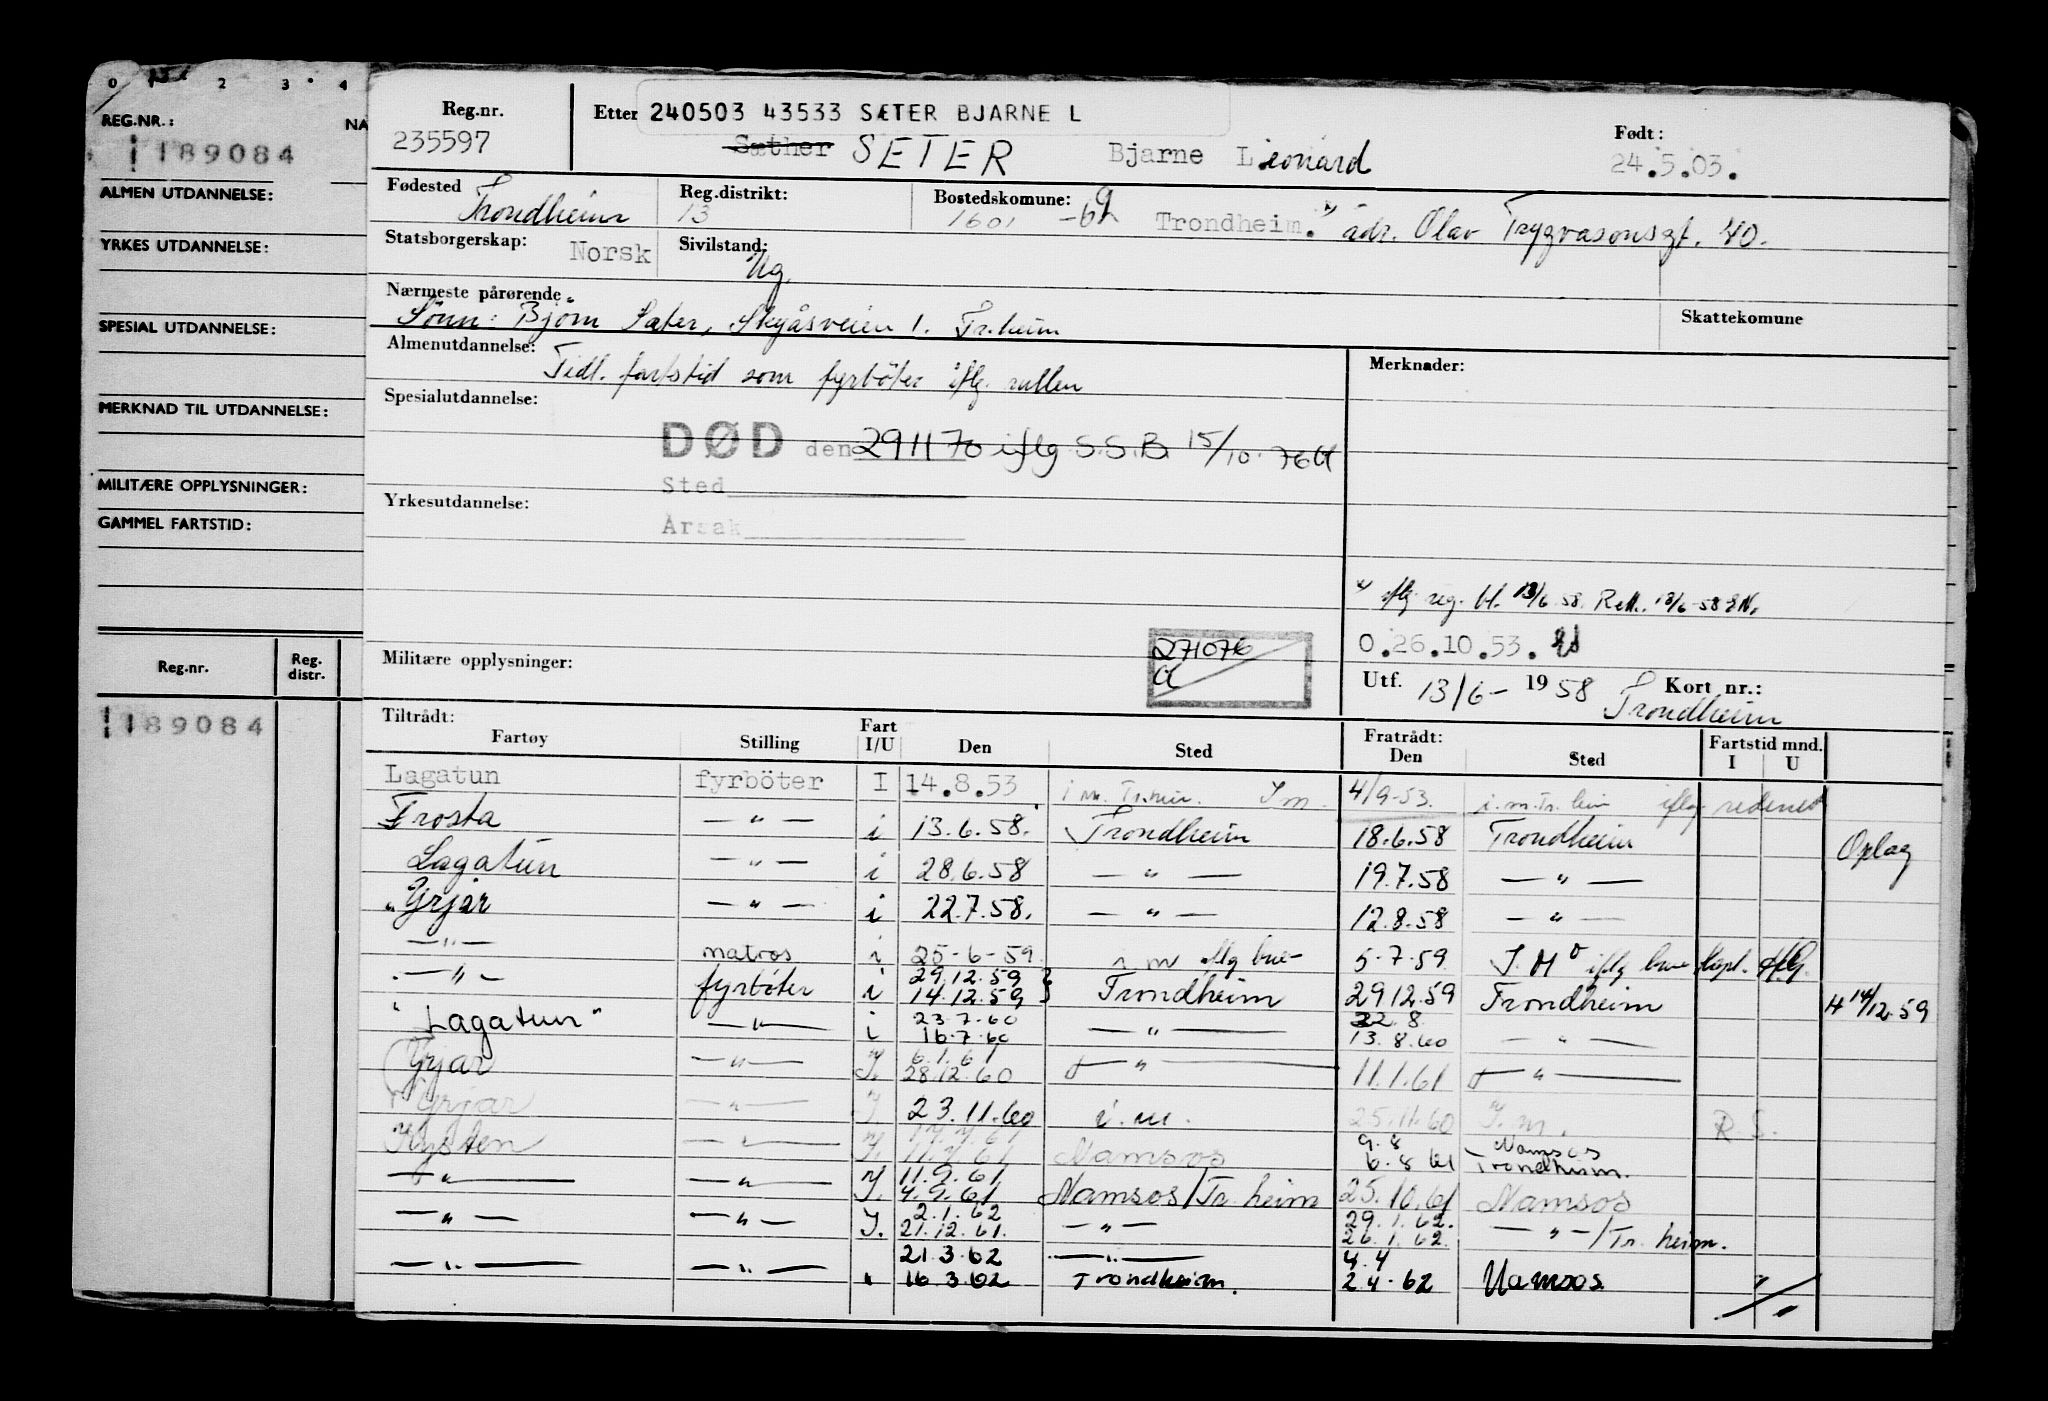 0 2 3 4
REG.NR.: NA
189084
ALMEN UTDANNELSE:
YRKES UTDANNELSE:
SPESIAL UTDANNELSE:
MERKNAD TIL UTDANNELSE:
MILITÆRE OPPLYSNINGER:
GAMMEL FARTSTID:
Reg.nr. Reg. distr.
189084
Reg.nr. 235597
Etter 240503 43533 SÆTER BJARNE L
Sæther SETER Bjarne Leonard
Født: 24.5.03.
Fødested Trondheim Reg.distrikt: 13 Bostedskomune: 1601 -69 Trondheim. adr. Olav Trygvasonsgt. 40.
Statsborgerskap: Norsk Sivilstand: Ug.
Nærmeste pårørende
Sønn: Bjørn Sæter, Skyåsveien 1. Tr.heim Skattekomune
Almenutdannelse: Tidl. fartstid som fyrbøter iflg. rullen Merknader:
Spesialutdannelse:
DØD den 291170 iflg S.S.B. 15/10.76
Sted
Yrkesutdannelse:
Årsak
iflg. reg. bl. 13/6 58. Rett. 13/6-58
271076
0.26.10.53.
Militære opplysninger:
Utf. 13/6- 1958 Kort nr.:
Trondheim
Tiltrådt: Fratrådt:
Fartøy Stilling Fart I/U Den Sted Den Sted Fartstid mnd. I U
Lagatun fyrböter I 14.8.53 i m. Tr.heim. I m. 4/9-53. i.m. Tr. heim iflg rederiet
Frosta — " — i 13.6.58. Trondheim 18.6.58 Trondheim Oplag
Lagatun — " — i 28.6.58 — " — 19.7.58 — " —
"Yrjar — " — i 22.7.58. — " — 12.8.58 — " —
— " — matros i 25-6-59. i m iflg 5.7.59. I. M iflg
— " — fyrbøter i 29.12.59 14.12.59 Trondheim 29 12.59 Trondheim 14/12.59
"Lagatun" — " — i 23.7.60 16.7.60 — " — 22.8. 13.8.60 — " —
Yrjar — " — I. 6.1.61 28.12.60 — " — 11.1.61 — " —
Yrjar — " — I. 23.11.60 i.m. 25.11.60 I.m. R.S.
Kysten — " — I. 11.7.61 Namsos 9.8 6.8 61 Namsos Trondheim.
— " — — " — I. 11.9.61 4.9.61 Namsos/Tr.heim 25.10.61 Namsos
— " — — " — I. 2.1.62 21.12.61. — " — 29.1.62. 26.1.62. — " — /Tr. heim.
— " — — " — " 21.3.62 16.3.62 — " — Trondheim. 4.4 2.4-62 Namsos